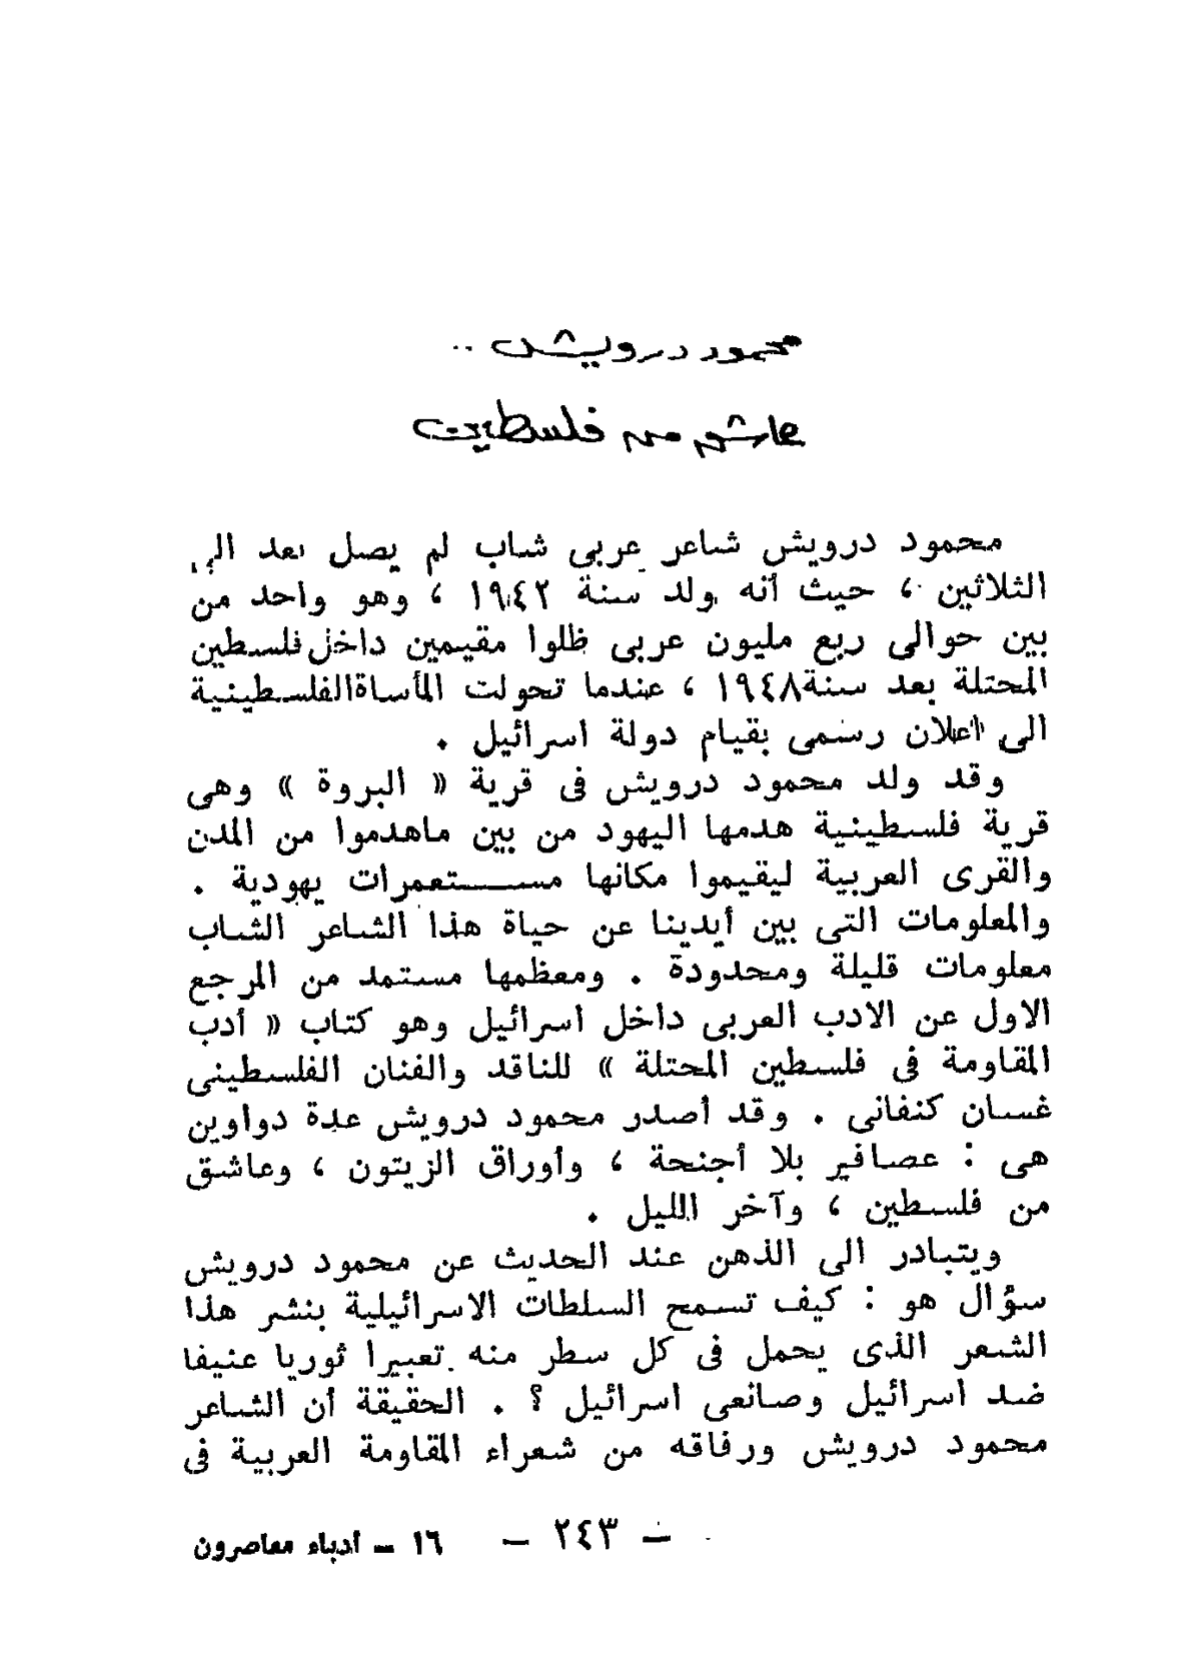 محمود درويش ..
عاشق من فلسطين
محمود درويش شاعر عربى شاب لم يصل بعد الى
الثلاثين ، حيث أنه ولد سنة ١٩٤٢ ، وهو واحد من
بين حوالى ربع مليون عربى ظلوا مقيمين داخل فلسطين
المحتلة بعد سنة١٩٤٨ ، عندما تحولت المأساةالفلسطينية
الى اعلان رسمى بقيام دولة اسرائيل .
وقد ولد محمود درويش فى قرية « البروة » وهى
قرية فلسطينية هدمها اليهود من بين ماهدموا من المدن
والقرى العربية ليقيموا مكانها مستعمرات يهودية .
والمعلومات التى بين أيدينا عن حياة هذا الشاعر الشاب
معلومات قليلة ومحدودة . ومعظمها مستمد من المرجع
الاول عن الادب العربى داخل اسرائيل وهو كتاب « أدب
المقاومة فى فلسطين المحتلة » للناقد والفنان الفلسطينى
غسان كنفانى . وقد أصدر محمود درويش عدة دواوين
هى : عصافير بلا أجنحة ، وأوراق الزيتون ، وعاشق
من فلسطين ، وآخر الليل .
ويتبادر الى الذهن عند الحديث عن محمود درويش
سؤال هو : كيف تسمح السلطات الاسرائيلية بنشر هذا
الشعر الذى يحمل فى كل سطر منه تعبيرا ثوريا عنيفا
ضد اسرائيل وصانعى اسرائيل ؟ . الحقيقة أن الشاعر
محمود درويش ورفاقه من شعراء المقاومة العربية فى
– ٢٤٣ –
١٦ – أدباء معاصرون